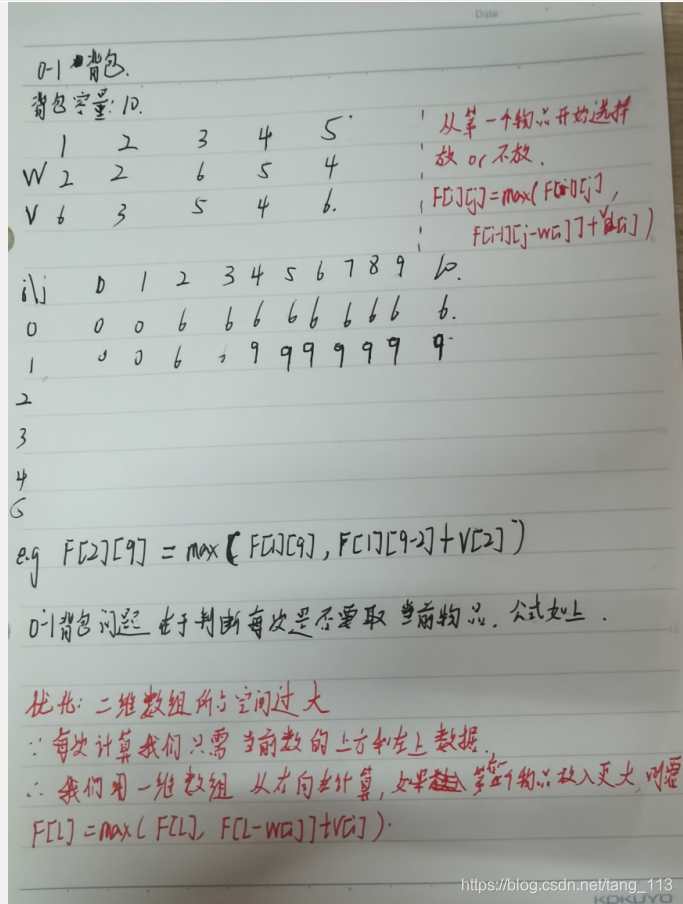 Date
0-1 背包.
背包容量: 10.
1 2 3 4 5
W 2 2 6 5 4
V 6 3 5 4 6.
从第一个物品开始选择
放 or 不放.
F[i][j]=max( F[i-1][j],
F[i-1][j-w[i]]+v[i])
i\j 0 1 2 3 4 5 6 7 8 9 10.
0 0 0 6 6 6 6 6 6 6 6 6.
1 0 0 6 9 9 9 9 9 9 9
2
3
4
5
e.g F[2][9] = max( F[1][9], F[1][9-2]+V[2])
0-1背包问题 在于判断每次是否要取 当前物品. 公式如上.
优化: 二维数组所占空间过大
∵ 每次计算我们只需 当前数的上方和左上数据.
∴ 我们用一维数组 从右向左计算, 如果 第i个物品放入更大, 则要
F[L] = max( F[L], F[L-w[i]]+v[i]).
https://blog.csdn.net/tang_113
KOKUYO